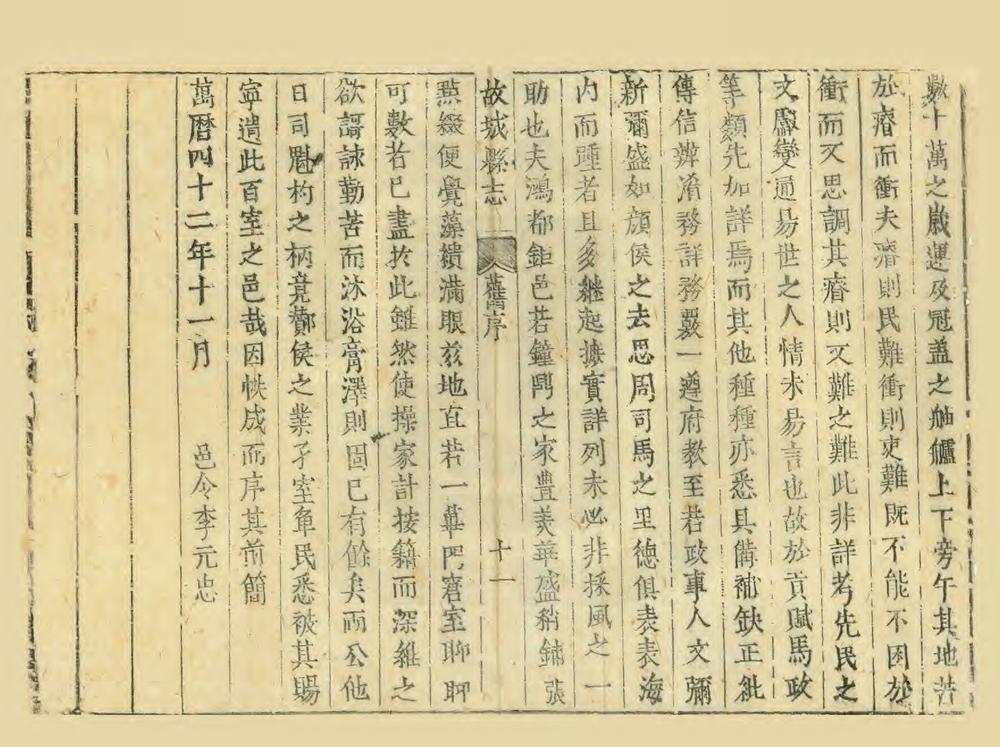 數十萬之歲運及冠蓋之舳艫上下旁午其地苦
於瘠而衝夫瘠則民難衝則吏難既不能不困於
衝而又思調其瘠則又難之難此非詳考先民之
文驟變通易世之人情未易言也故於貢賦馬政
等類先加詳焉而其他種種亦悉具備補缺正紕
傳信辨淆務詳務覈一遵府教至若政事人文彌
新彌盛如顔侯之去思周司馬之里德俱表表海
內而踵者且多繼起摭實詳列未必非採風之一
助也夫鴻都鉅邑若鐘鼎之家豊美華盛稍鋪張
故城縣志 舊序 十一
點綴便覺藻繢滿眼兹地直若一蓽門窘室聊聊
可數若已盡於此雖然使操家計按籍而深維之
欲謌詠勤苦而沐浴膏澤則固已有餘矣兩公他
日司魁杓之柄竟酇侯之業孑室單民悉被其賜
寧遺此百室之邑哉因帙成而序其前簡
萬曆四十二年十一月 邑令李元忠